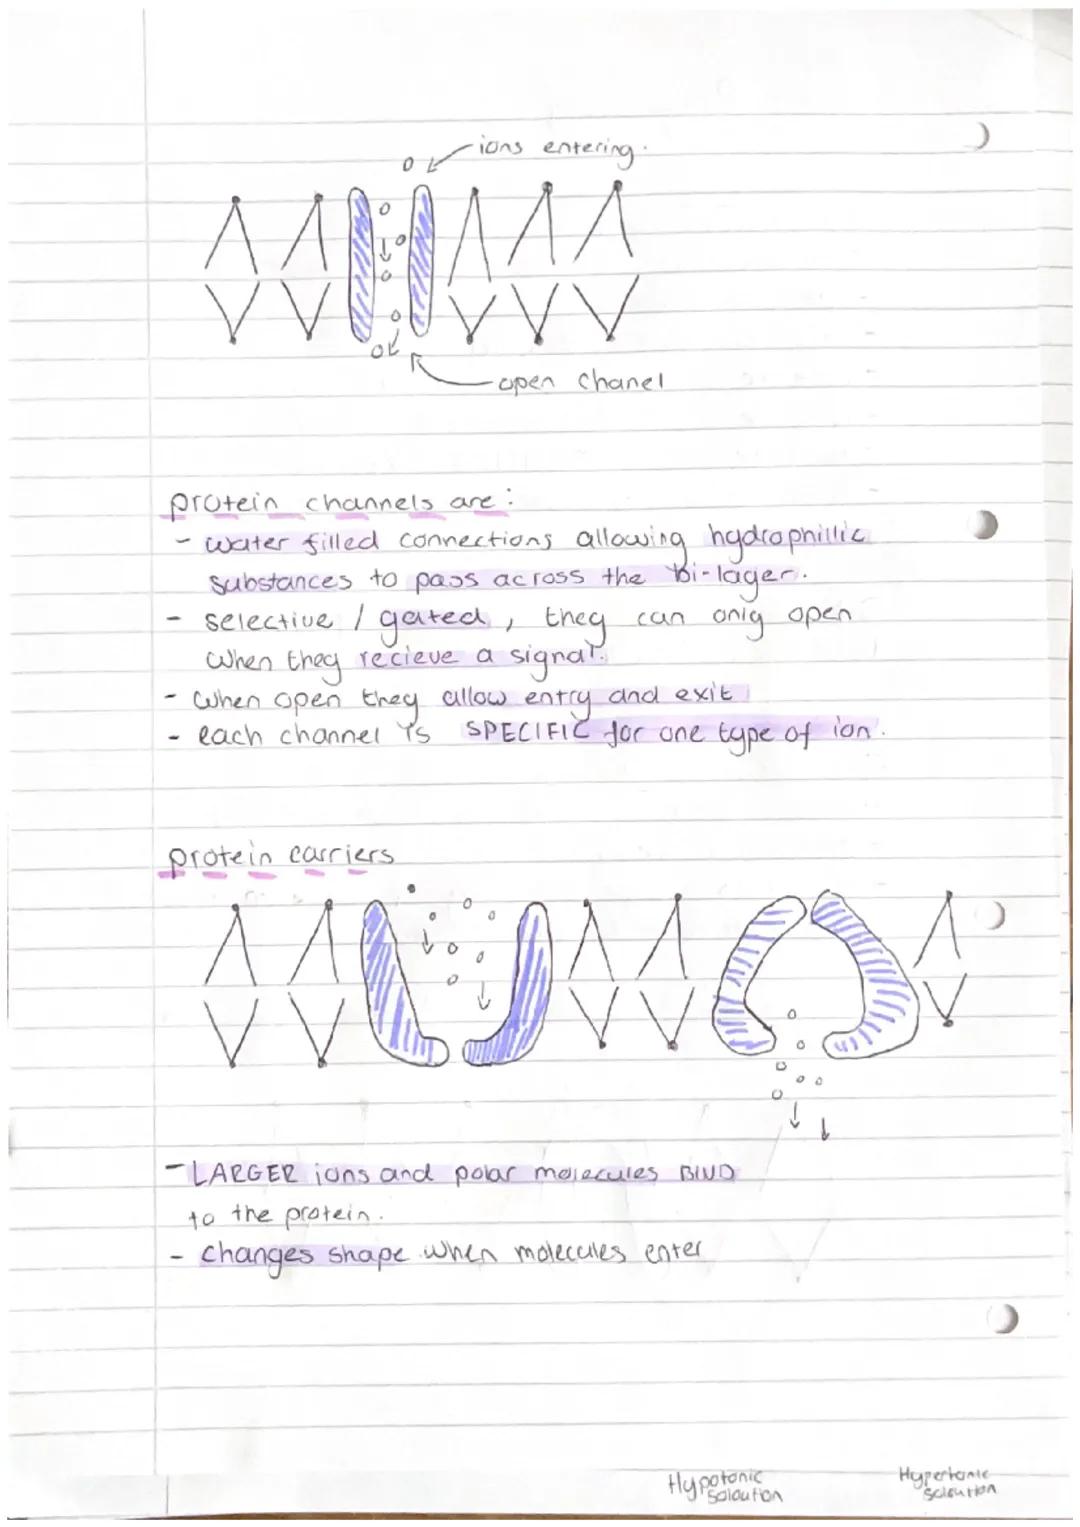 ions entering.
open chanel
protein channels are:
- water filled connections allowing hydrophillic
substances to pass across the bi-layer.
- selective / gated, they can only open
when they recieve a signal.
- when open they allow entry and exit
- each channel is SPECIFIC for one type of ion.
protein carriers
- LARGER ions and polar molecules BIND
to the protein.
- changes shape when molecules enter
Hypotonic
Soloution
Hypertonic
Soloution